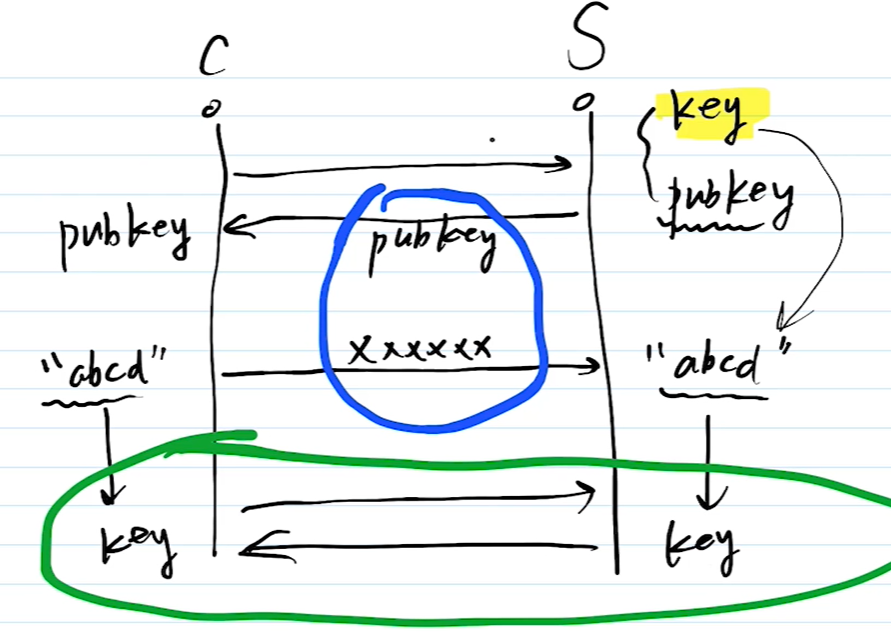 C
S
key
pubkey
pubkey
pubkey
xxxxxx
"abcd"
"abcd"
key
key